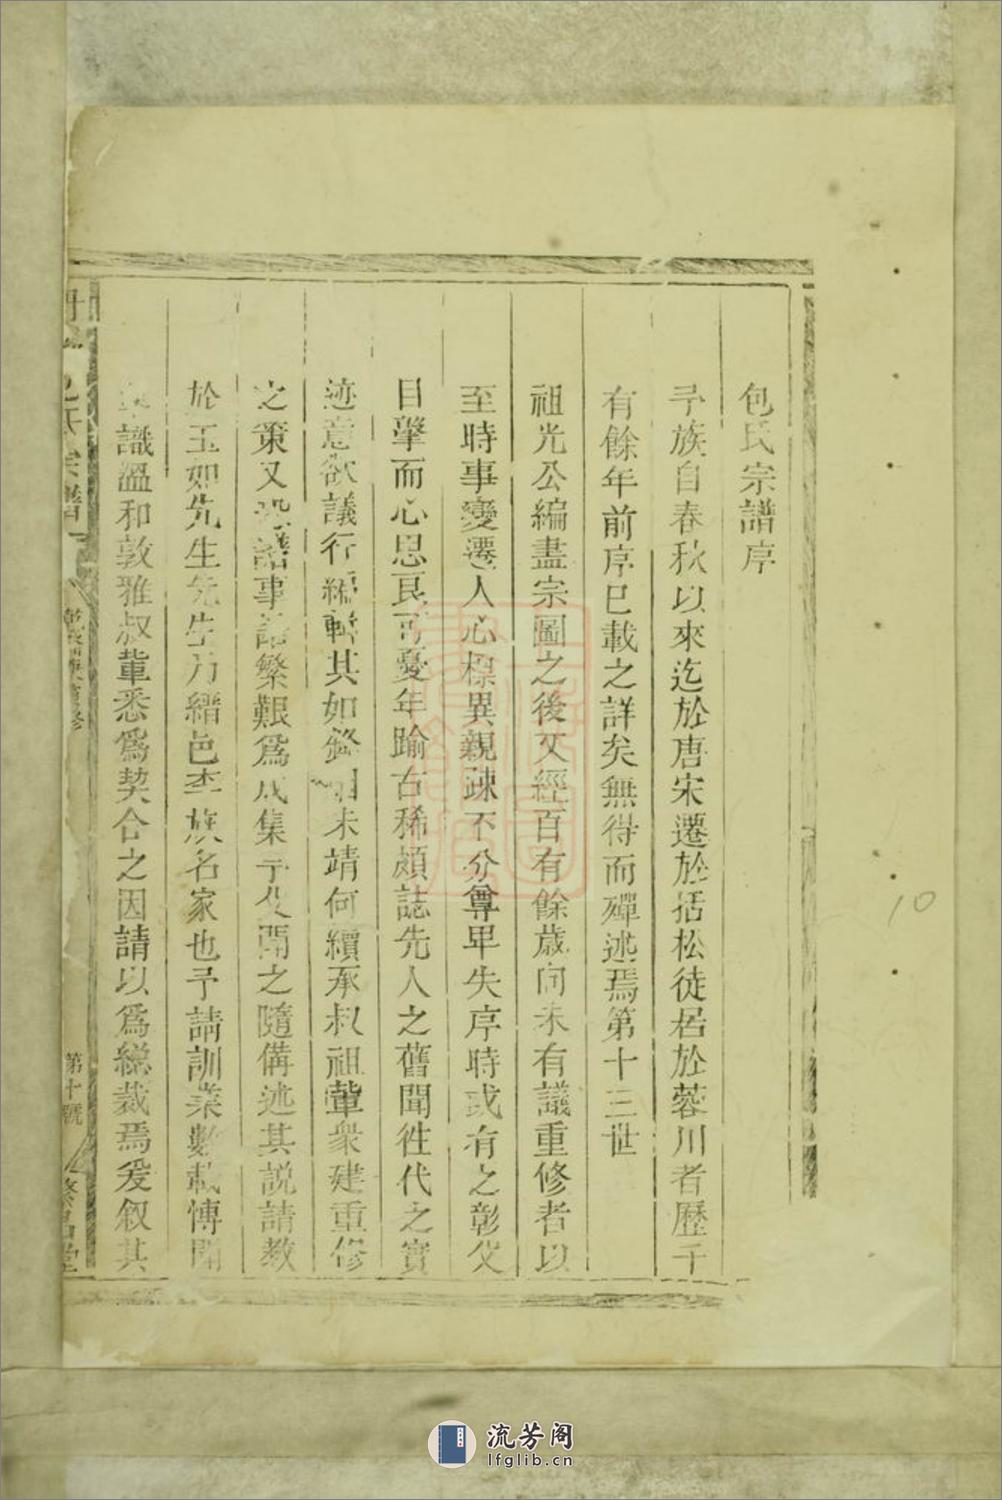 包氏宗譜序
予族自春秋以來迄於唐宋遷於括松徒居於蓉川者歷千
有餘年前序已載之詳矣無待而殫述焉第十三世
祖光公編畫宗圖之後又經百有餘歲向未有議重修者以
至時事變遷人心標異親踈不分尊卑失序時或有之彰父
目擊而心思艮可憂年踰古稀頗誌先人之舊聞徃代之實
迹意欲議行編輯其如烽烟未靖何續承叔祖輩衆建重修
之策又恐譜事諸繁艱爲成集予父聞之隨備述其說請教
於玉如先生先生乃縉邑李族名家也予請訓業數載愽聞
識溫和敦雅叔輩悉爲契合之因請以爲總裁焉爰叙其
包氏宗譜
重修
第十號
繁昌堂
10
流芳阁
lfglib.cn